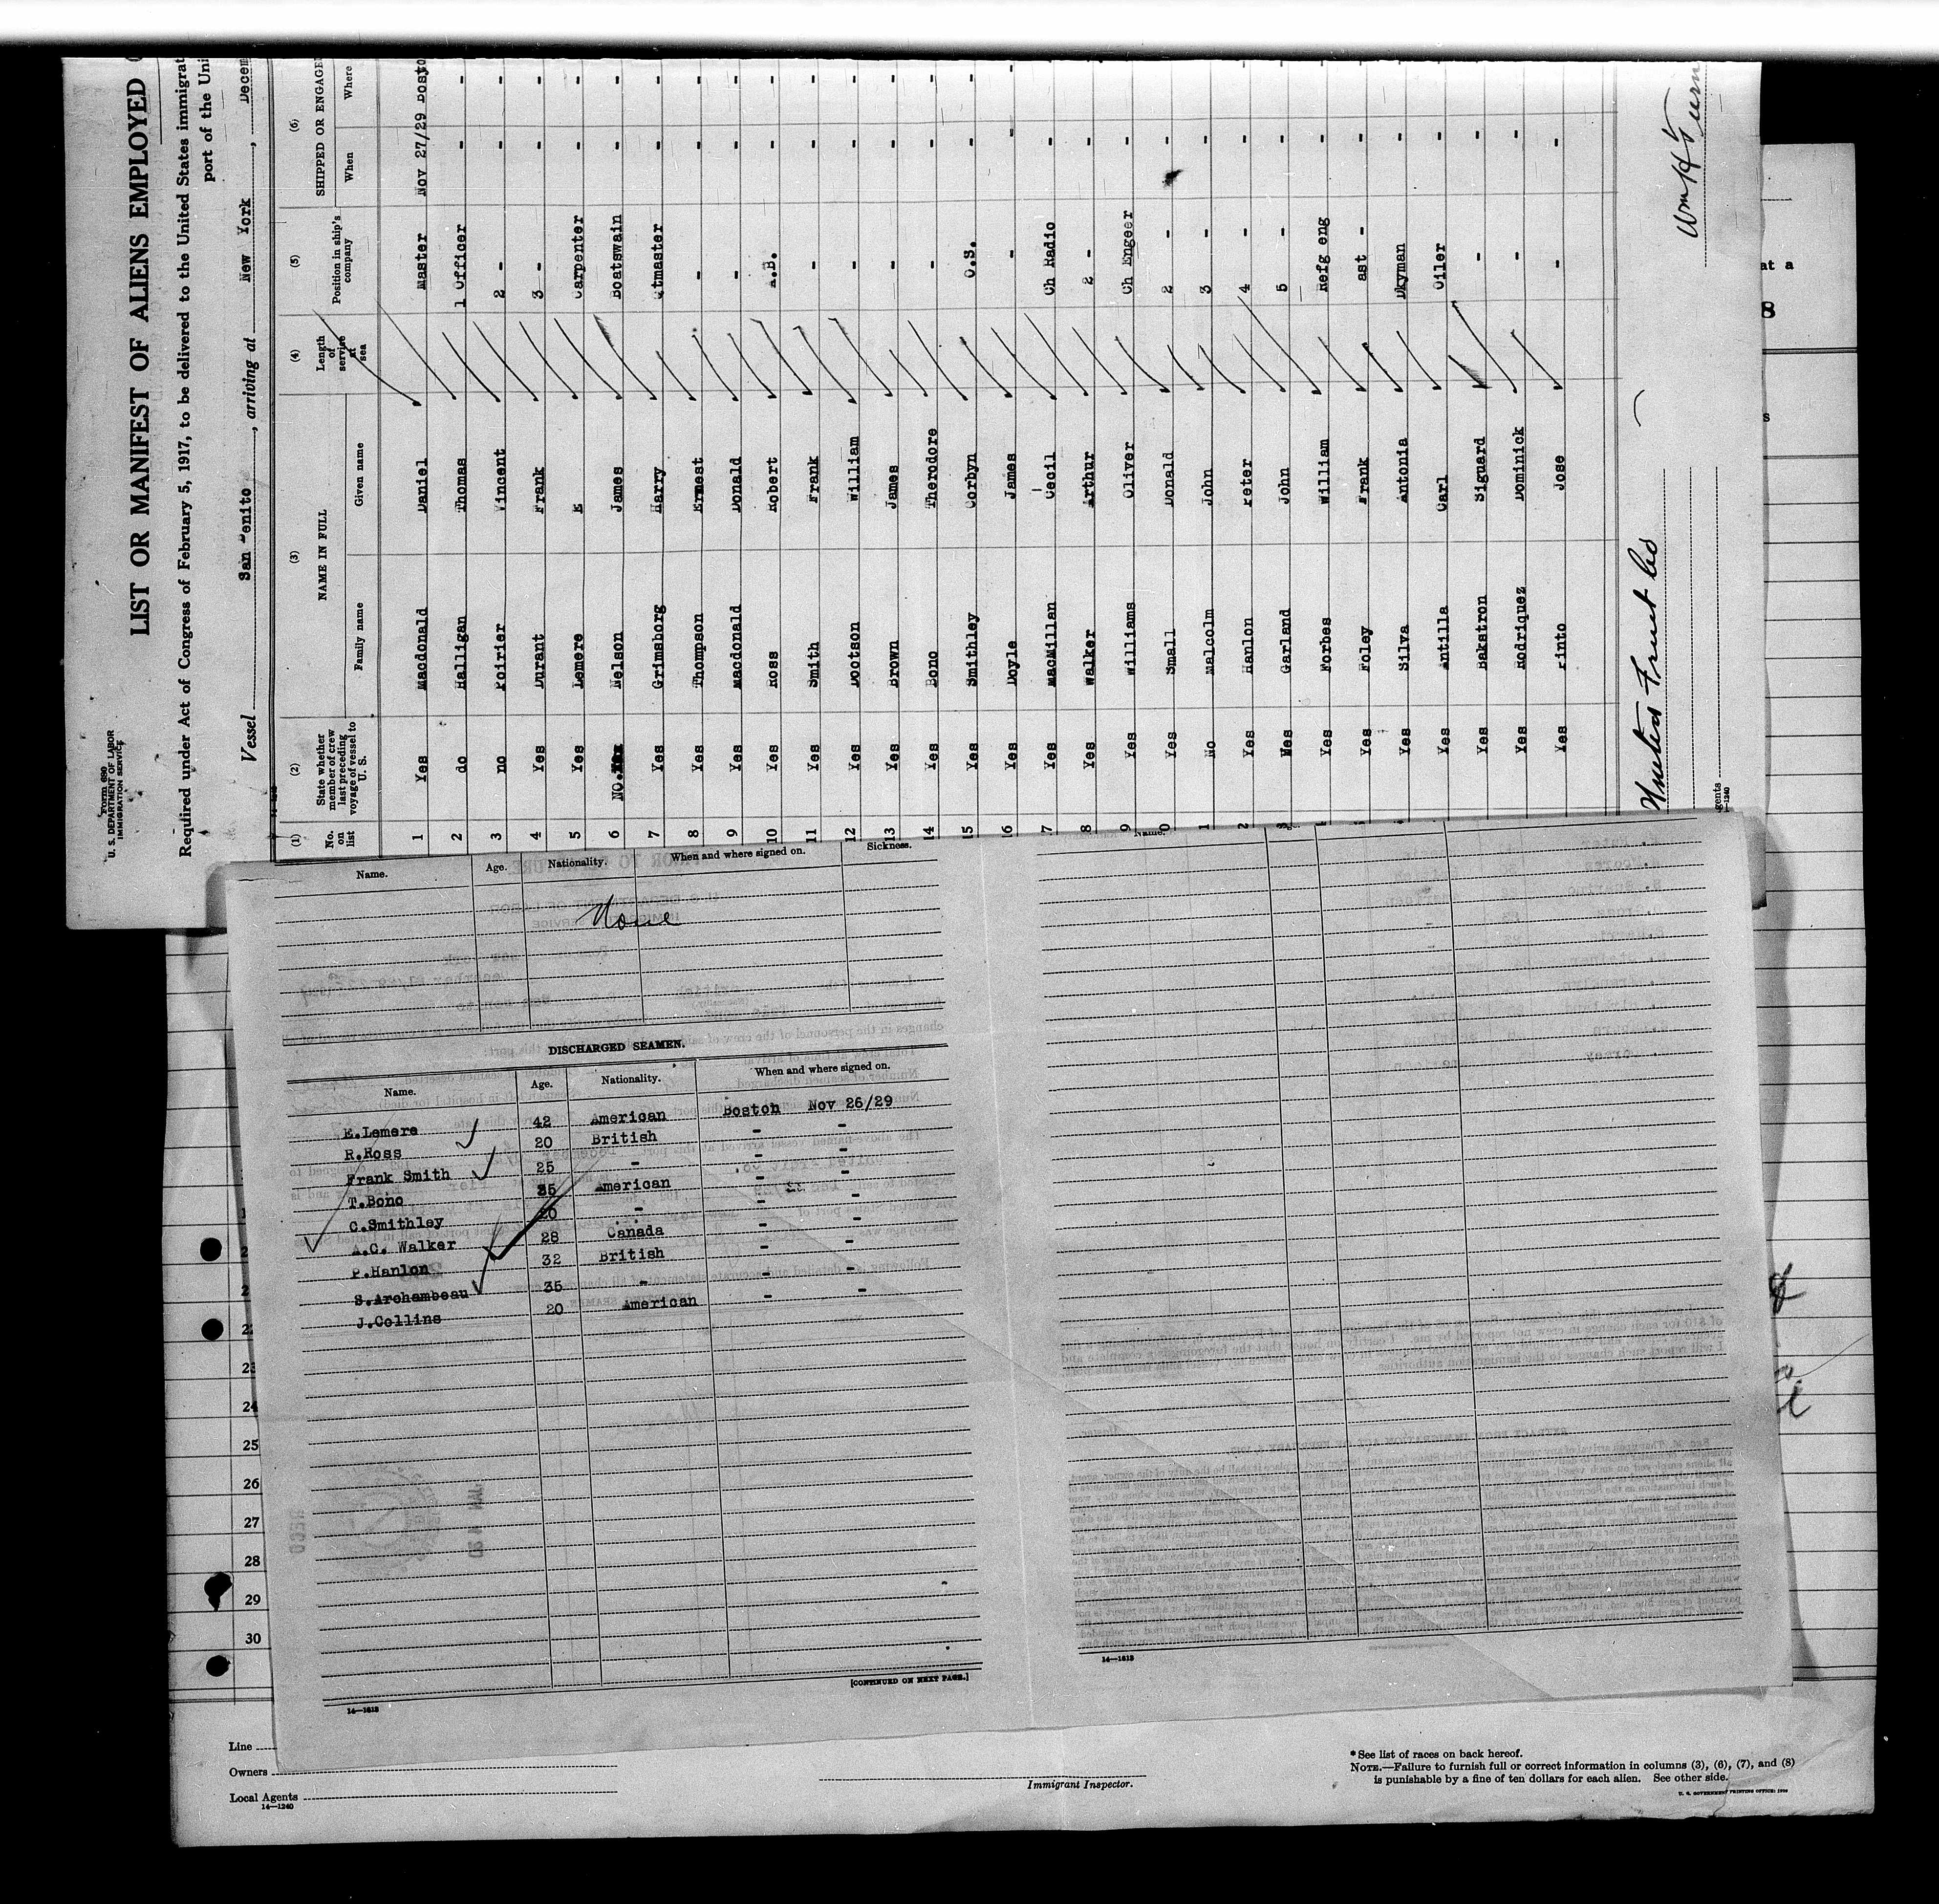 Form 680
U. S. DEPARTMENT OF LABOR
IMMIGRATION SERVICE
LIST OR MANIFEST OF ALIENS EMPLOYED
Required under Act of Congress of February 5, 1917, to be delivered to the United States immigrat
port of the Uni
Vessel San Benito, arriving at New York, Decem
(1) (2) (3) (4) (5) (6)
No. on list State whether member of crew last preceding voyage of vessel to U. S. NAME IN FULL Length of service at sea Position in ship's company SHIPPED OR ENGAGE
Family name Given name When Where
1 Yes Macdonald Daniel Master Nov 27/29 Bosto
2 do Halligan Thomas 1 Officer - -
3 no Poirier Vincent 2 - - -
4 Yes Durant Frank 3 - - -
5 Yes Lemere E Carpenter - -
6 NO. Nelson James Boatswain - -
7 Yes Grimsborg Harry Qtmaster - -
8 Yes Thompson Ernest - - -
9 Yes Macdonald Donald - - -
10 Yes Ross Robert A.B. - -
11 Yes Smith Frank - - -
12 Yes Dootson William - - -
13 Yes Brown James - - -
14 Yes Bono Therodore - - -
15 Yes Smithley Corbyn O.S. - -
16 Yes Doyle James - - -
17 Yes MacMillan Cecil Ch Radio - -
8 Yes Walker Arthur 2 - - -
9 Yes Williams Oliver Ch Engeer - -
0 Yes Small Donald 2 - - -
1 No Malcolm John 3 - - -
2 Yes Hanlon Peter 4 - - -
3 Yes Garland John 5 - - -
Yes Forbes William Refg eng - -
Yes Foley Frank ast - - -
Yes Silva Antonia Dkyman - -
Yes Antilla Carl Oiler - -
Yes Bakstron Siguard - - -
Yes Rodriquez Dominick - - -
Yes Pinto Jose - - -
United Fruit Co
Wm H Turn
gents
14—1240
at a
8
s
Name. Age. Nationality. When and where signed on. Sickness.
None
DISCHARGED SEAMEN.
Name. Age. Nationality. When and where signed on.
E.Lemere 42 American Boston Nov 26/29
R.Ross 20 British - -
Frank Smith 25 - - -
T.Bono 35 American - -
C.Smithley 20 - - -
A.C. Walker 28 Canada - -
P.Hanlon 32 British - -
S.Archambeau 35 - - -
J.Collins 20 American - -
[CONTINUED ON NEXT PAGE.]
14—1613
Name.
14—1613
23
24
25
26
27
28
29
30
Line
Owners
Local Agents
14—1240
Immigrant Inspector.
*See list of races on back hereof.
NOTE.—Failure to furnish full or correct information in columns (3), (6), (7), and (8)
is punishable by a fine of ten dollars for each alien. See other side.
U. S. GOVERNMENT PRINTING OFFICE: